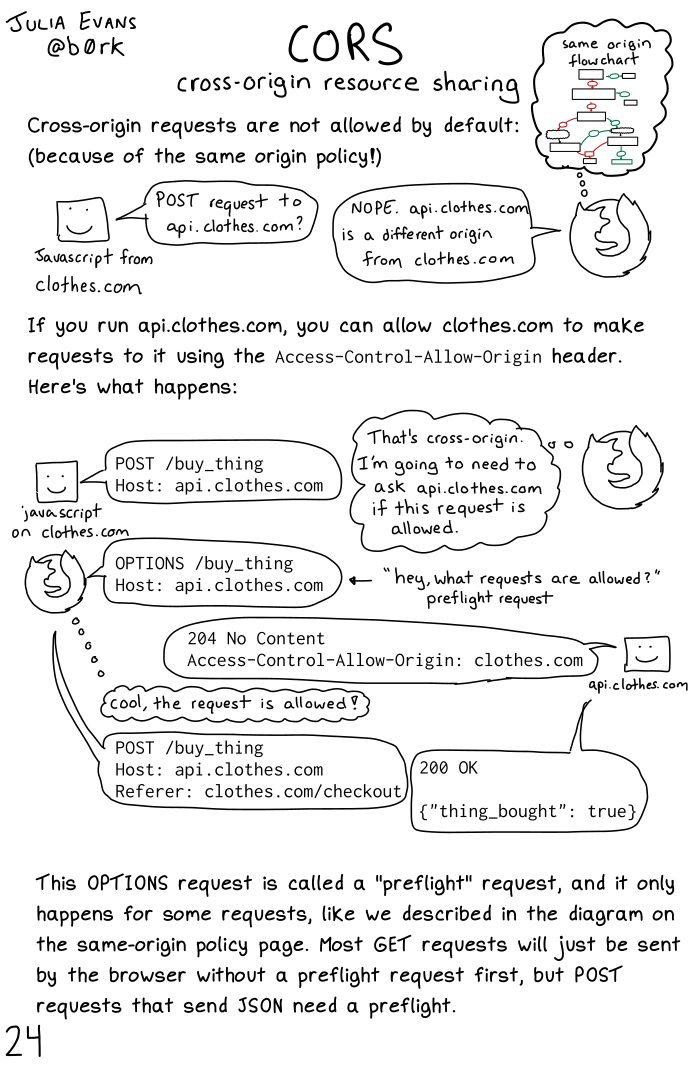 JULIA EVANS
@b0rk
CORS
cross-origin resource sharing
same origin
flowchart
Cross-origin requests are not allowed by default:
(because of the same origin policy!)
POST request to
api.clothes.com?
Javascript from
clothes.com
NOPE. api.clothes.com
is a different origin
from clothes.com
If you run api.clothes.com, you can allow clothes.com to make
requests to it using the Access-Control-Allow-Origin header.
Here's what happens:
POST /buy_thing
Host: api.clothes.com
javascript
on clothes.com
That's cross-origin.
I'm going to need to
ask api.clothes.com
if this request is
allowed.
OPTIONS /buy_thing
Host: api.clothes.com
"hey, what requests are allowed?"
preflight request
204 No Content
Access-Control-Allow-Origin: clothes.com
api.clothes.com
cool, the request is allowed!
POST /buy_thing
Host: api.clothes.com
Referer: clothes.com/checkout
200 OK
{"thing_bought": true}
This OPTIONS request is called a "preflight" request, and it only
happens for some requests, like we described in the diagram on
the same-origin policy page. Most GET requests will just be sent
by the browser without a preflight request first, but POST
requests that send JSON need a preflight.
24